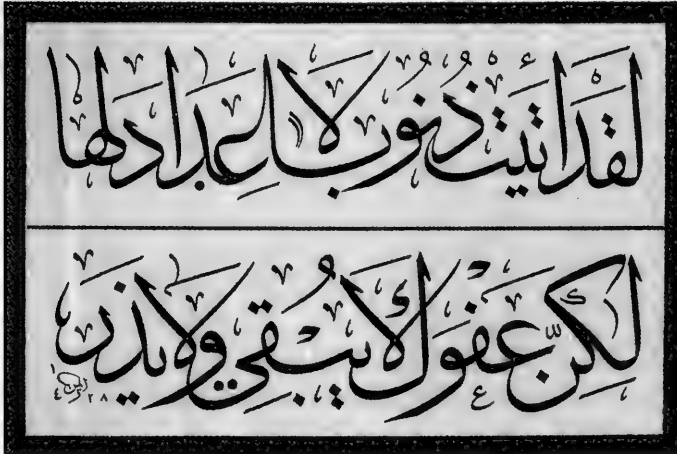 لقد اتيت ذنوبا لا عداد لها
لكن عفوك لا يبقي ولا يذر